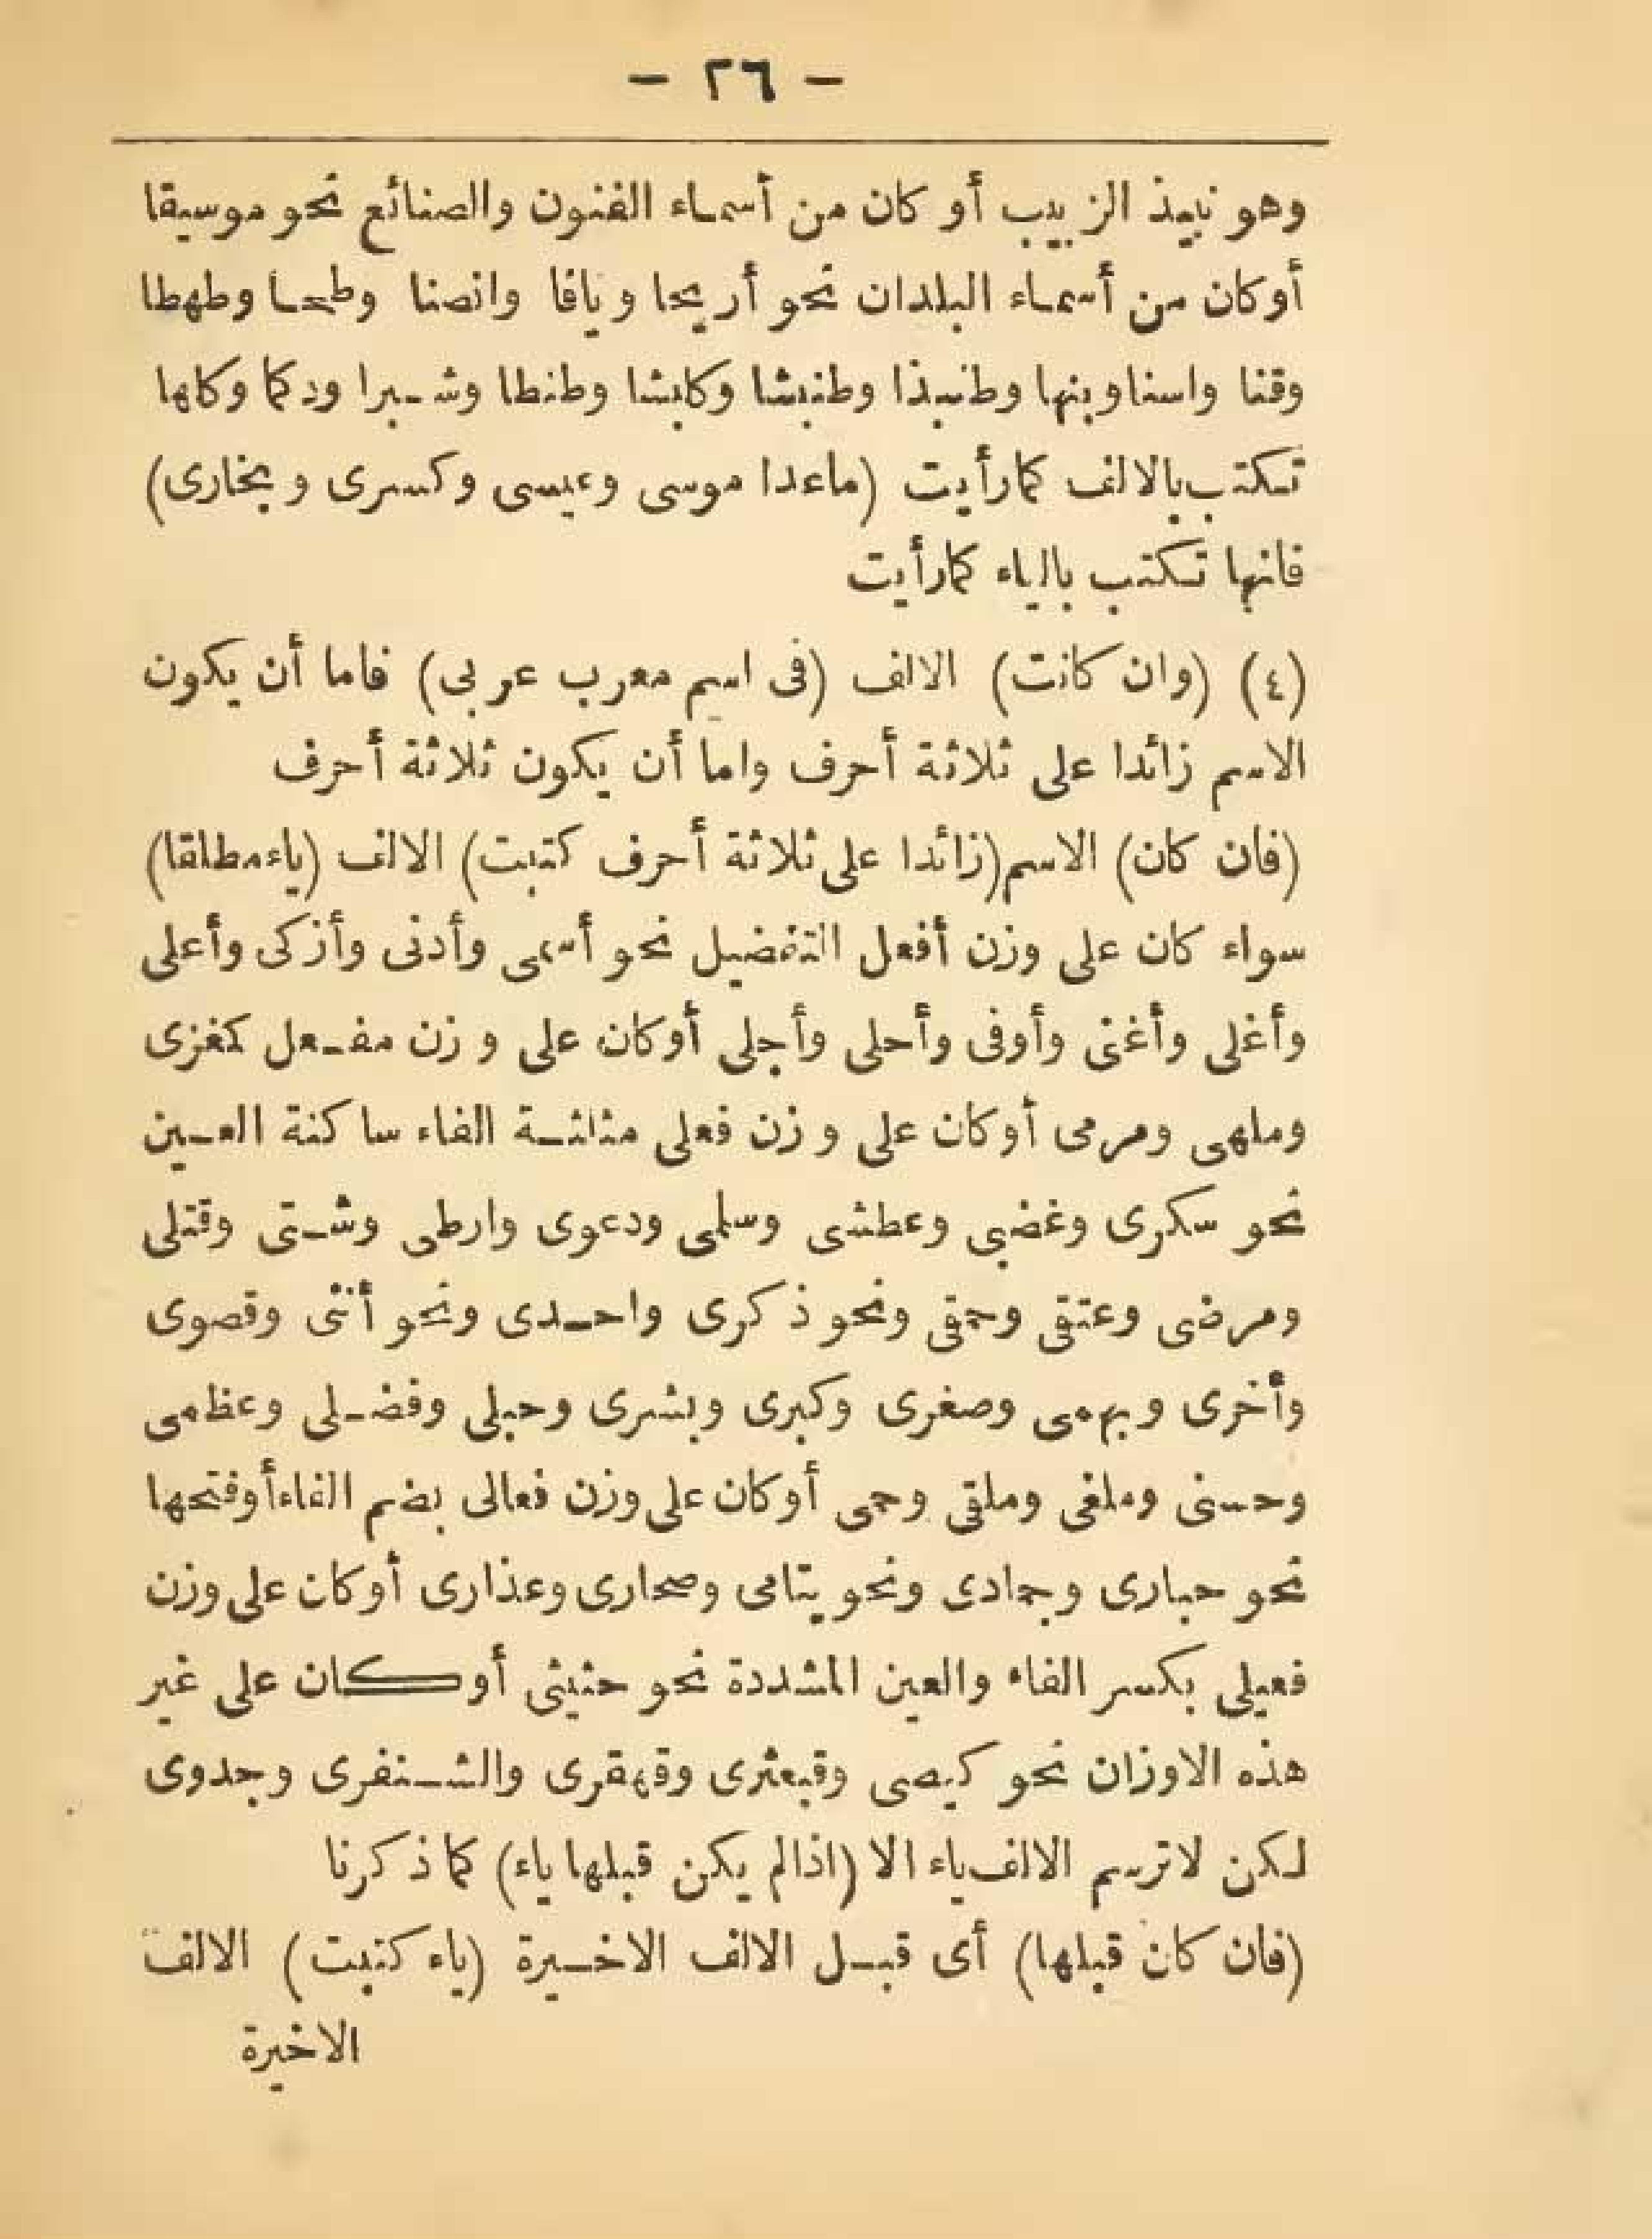 - ٢٦ -
وهو نبيذ الزبيب أو كان من أسماء الفنون والصنائع نحو موسيقا
أو كان من أسماء البلدان نحو أريحا ويافا وانصنا وطحا وطهطا
وقنا واسنا وبنها وطنبذا وطنبشا وكابشا وطنطا وشبرا ودكما وكلها
تكتب بالالف كما رأيت (ما عدا موسى وعيسى وكسرى وبخارى)
فانها تكتب بالياء كما رأيت
(٤) (وان كانت) الالف (فى اسم معرب عربى) فاما أن يكون
الاسم زائدا على ثلاثة أحرف واما أن يكون ثلاثة أحرف
(فان كان) الاسم (زائدا على ثلاثة أحرف كتبت) الالف (ياء مطلقا)
سواء كان على وزن أفعل التفضيل نحو أسمى وأدنى وأزكى وأعلى
وأغلى وأغنى وأوفى وأحلى وأجلى أو كان على وزن مفعل كمغزى
وملهى ومرمى أو كان على وزن فعلى مثلثة الفاء ساكنة العين
نحو سكرى وغضبى وعطشى وسلمى ودعوى وارطى وشتى وقتلى
ومرضى وعتقى وحمقى ونحو ذكرى واحدى ونحو أنثى وقصوى
وأخرى وبهمى وصغرى وكبرى وبشرى وحبلى وفضلى وعظمى
وحسنى وملغى وملقى وحمى أو كان على وزن فعالى بضم الفاء أو فتحها
نحو حبارى وجمادى ونحو يتامى وصحارى وعذارى أو كان على وزن
فعيلى بكسر الفاء والعين المشددة نحو حثيثى أو كان على غير
هذه الاوزان نحو كيصى وقبعثرى وقهقرى والشنفرى وجدوى
لكن لا ترسم الالف ياء الا (اذا لم يكن قبلها ياء) كما ذكرنا
(فان كان قبلها) أى قبل الالف الاخيرة (ياء كتبت) الالف
الاخيرة